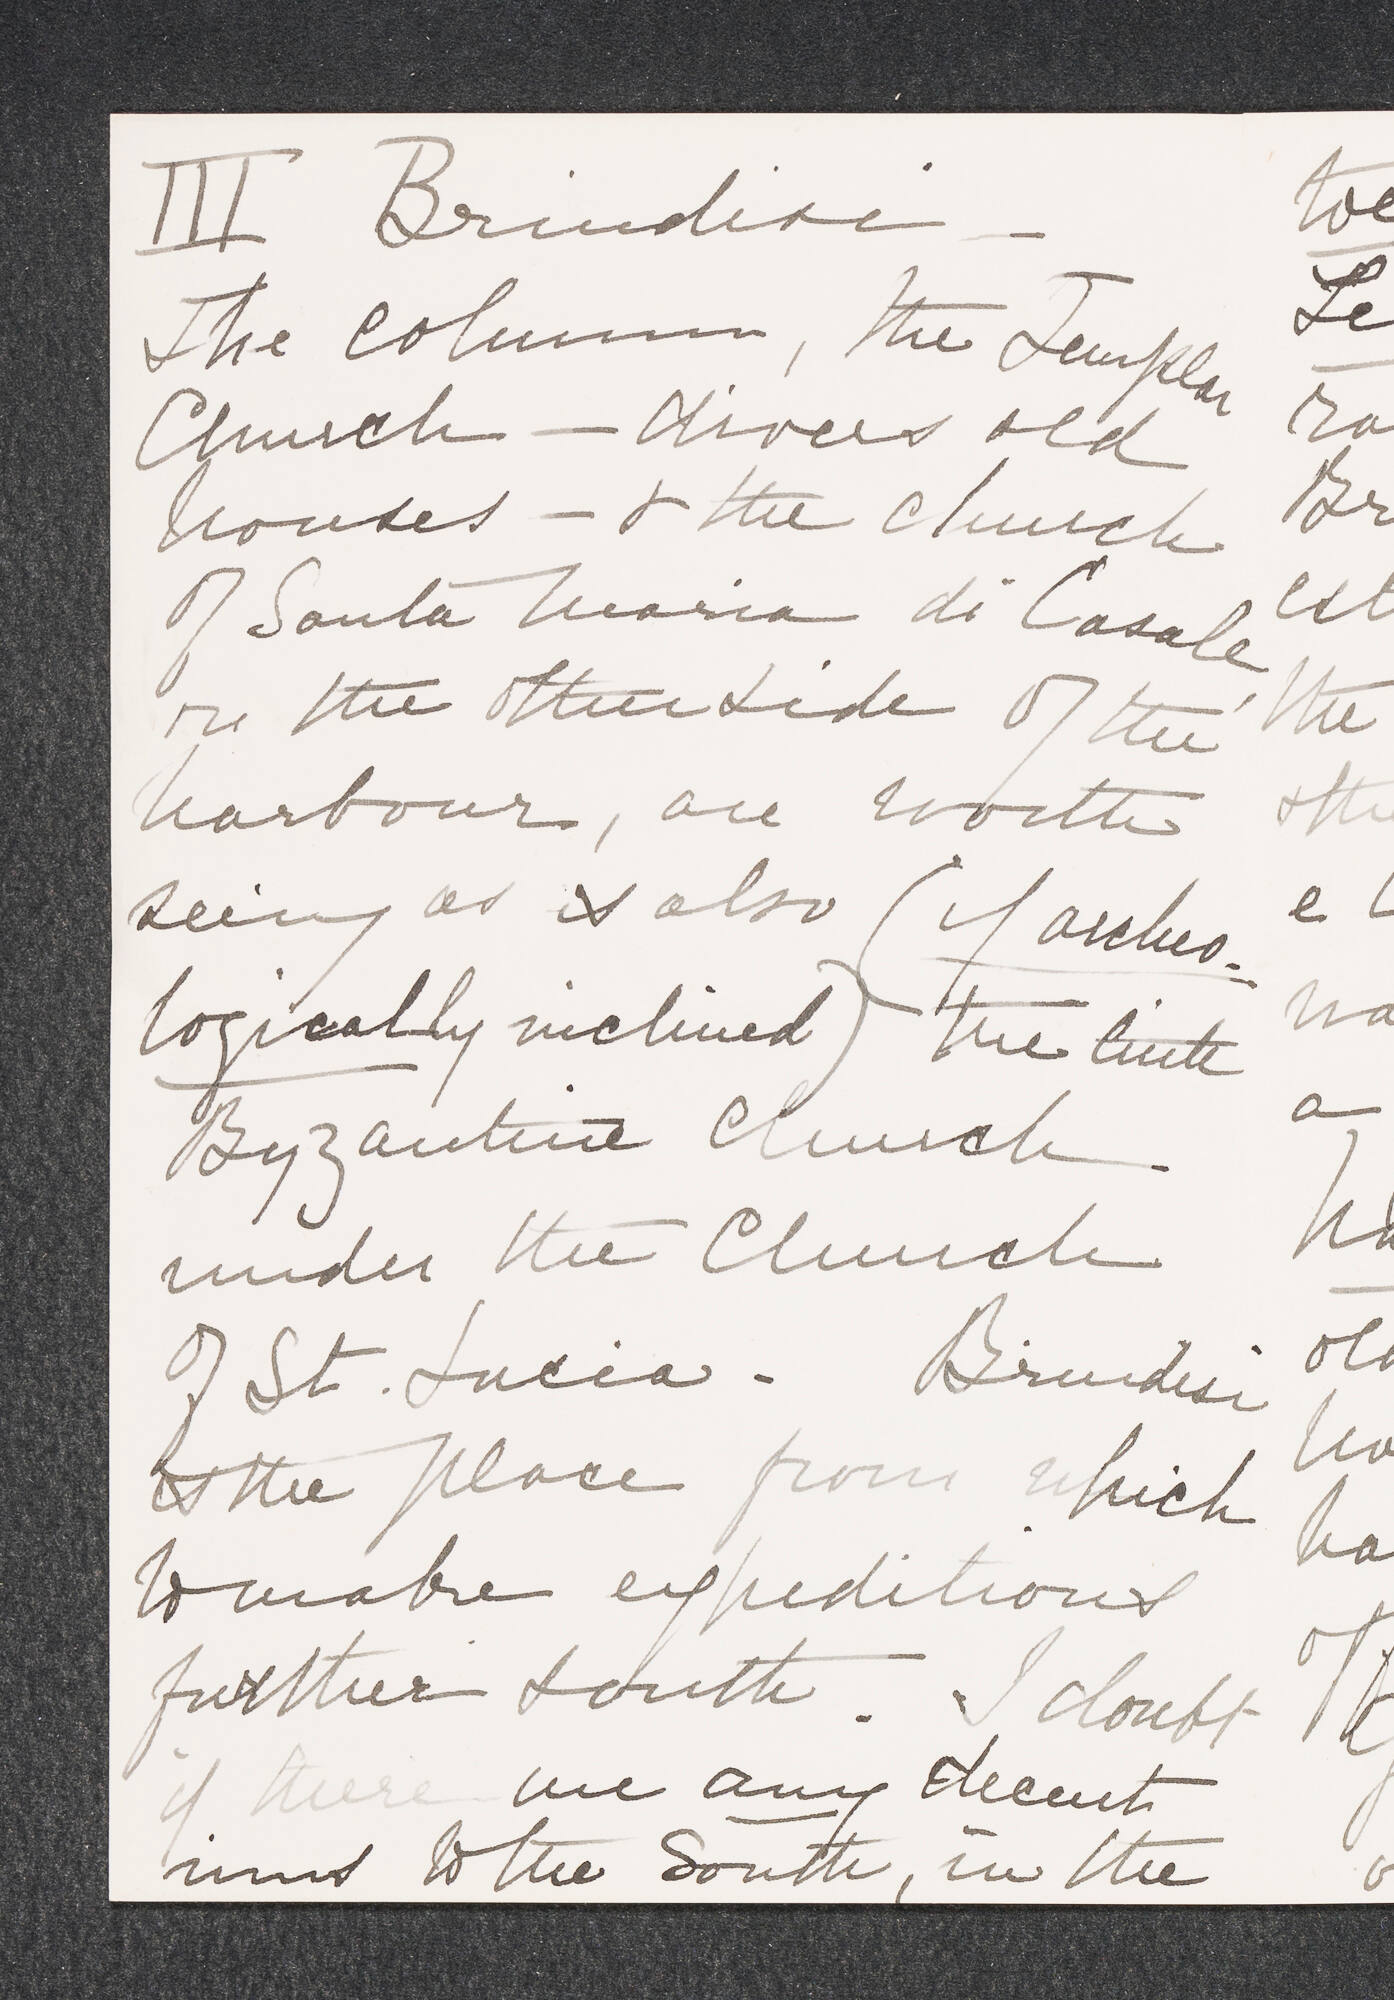 III Brindisi –
The column, the Templar
Church – divers old
houses – & the church
of Santa Maria di Casale,
on the other side of the
harbour, are worth
seeing as is also (if archeo-
logically inclined) the little
Byzantine church
under the Church
of St. Lucia. Brindisi
is the place from which
to make expeditions
further south. I doubt
if there are any decent
inns to the South, in the